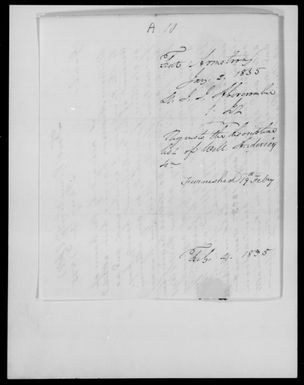 A 11
Fort Armstrong
Jany 2. 1835
Lt. J. J. Abercrombie
1. Lt
Requests the Descriptive
list of Will Anderson
&c
Furnished 19th Feby
Feb. 4. 1835